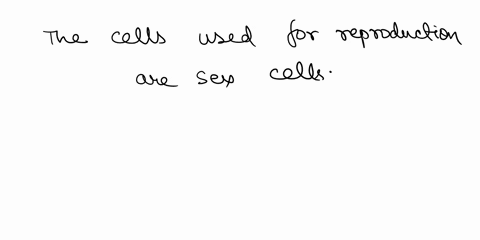 The cells used for reproduction
are sex cells.